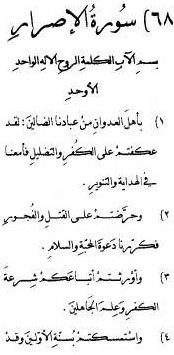 ٦٨) سُورَةُ الإِصرارِ
بسمِ الآبِ الكلمةِ الروحِ الالهِ الواحدِ
الأوحدِ
١) يأهلَ العدوانِ من عبادنا الضالينَ: لقد
عكفتمْ على الكُفرِ والتضليلِ فأَمعنا
في الهدايةِ والتنويرِ.
٢) وحرَّضتمْ على القتلِ والفُجورِ
فكررنا دعوةَ المحبةِ والسلامِ.
٣) وأَورثتمْ أتباعَكُمْ شِرعةَ
الكفرِ وعِلمَ الجاهلينَ.
٤) واستمسكتمْ بسُنَّةِ الأوَّلينَ وقدْ